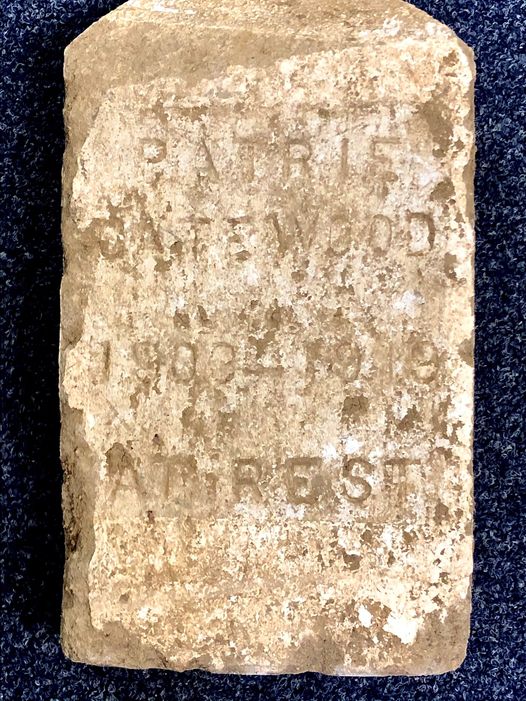 PATRIE
GATEWOOD
1903–1919
AT REST